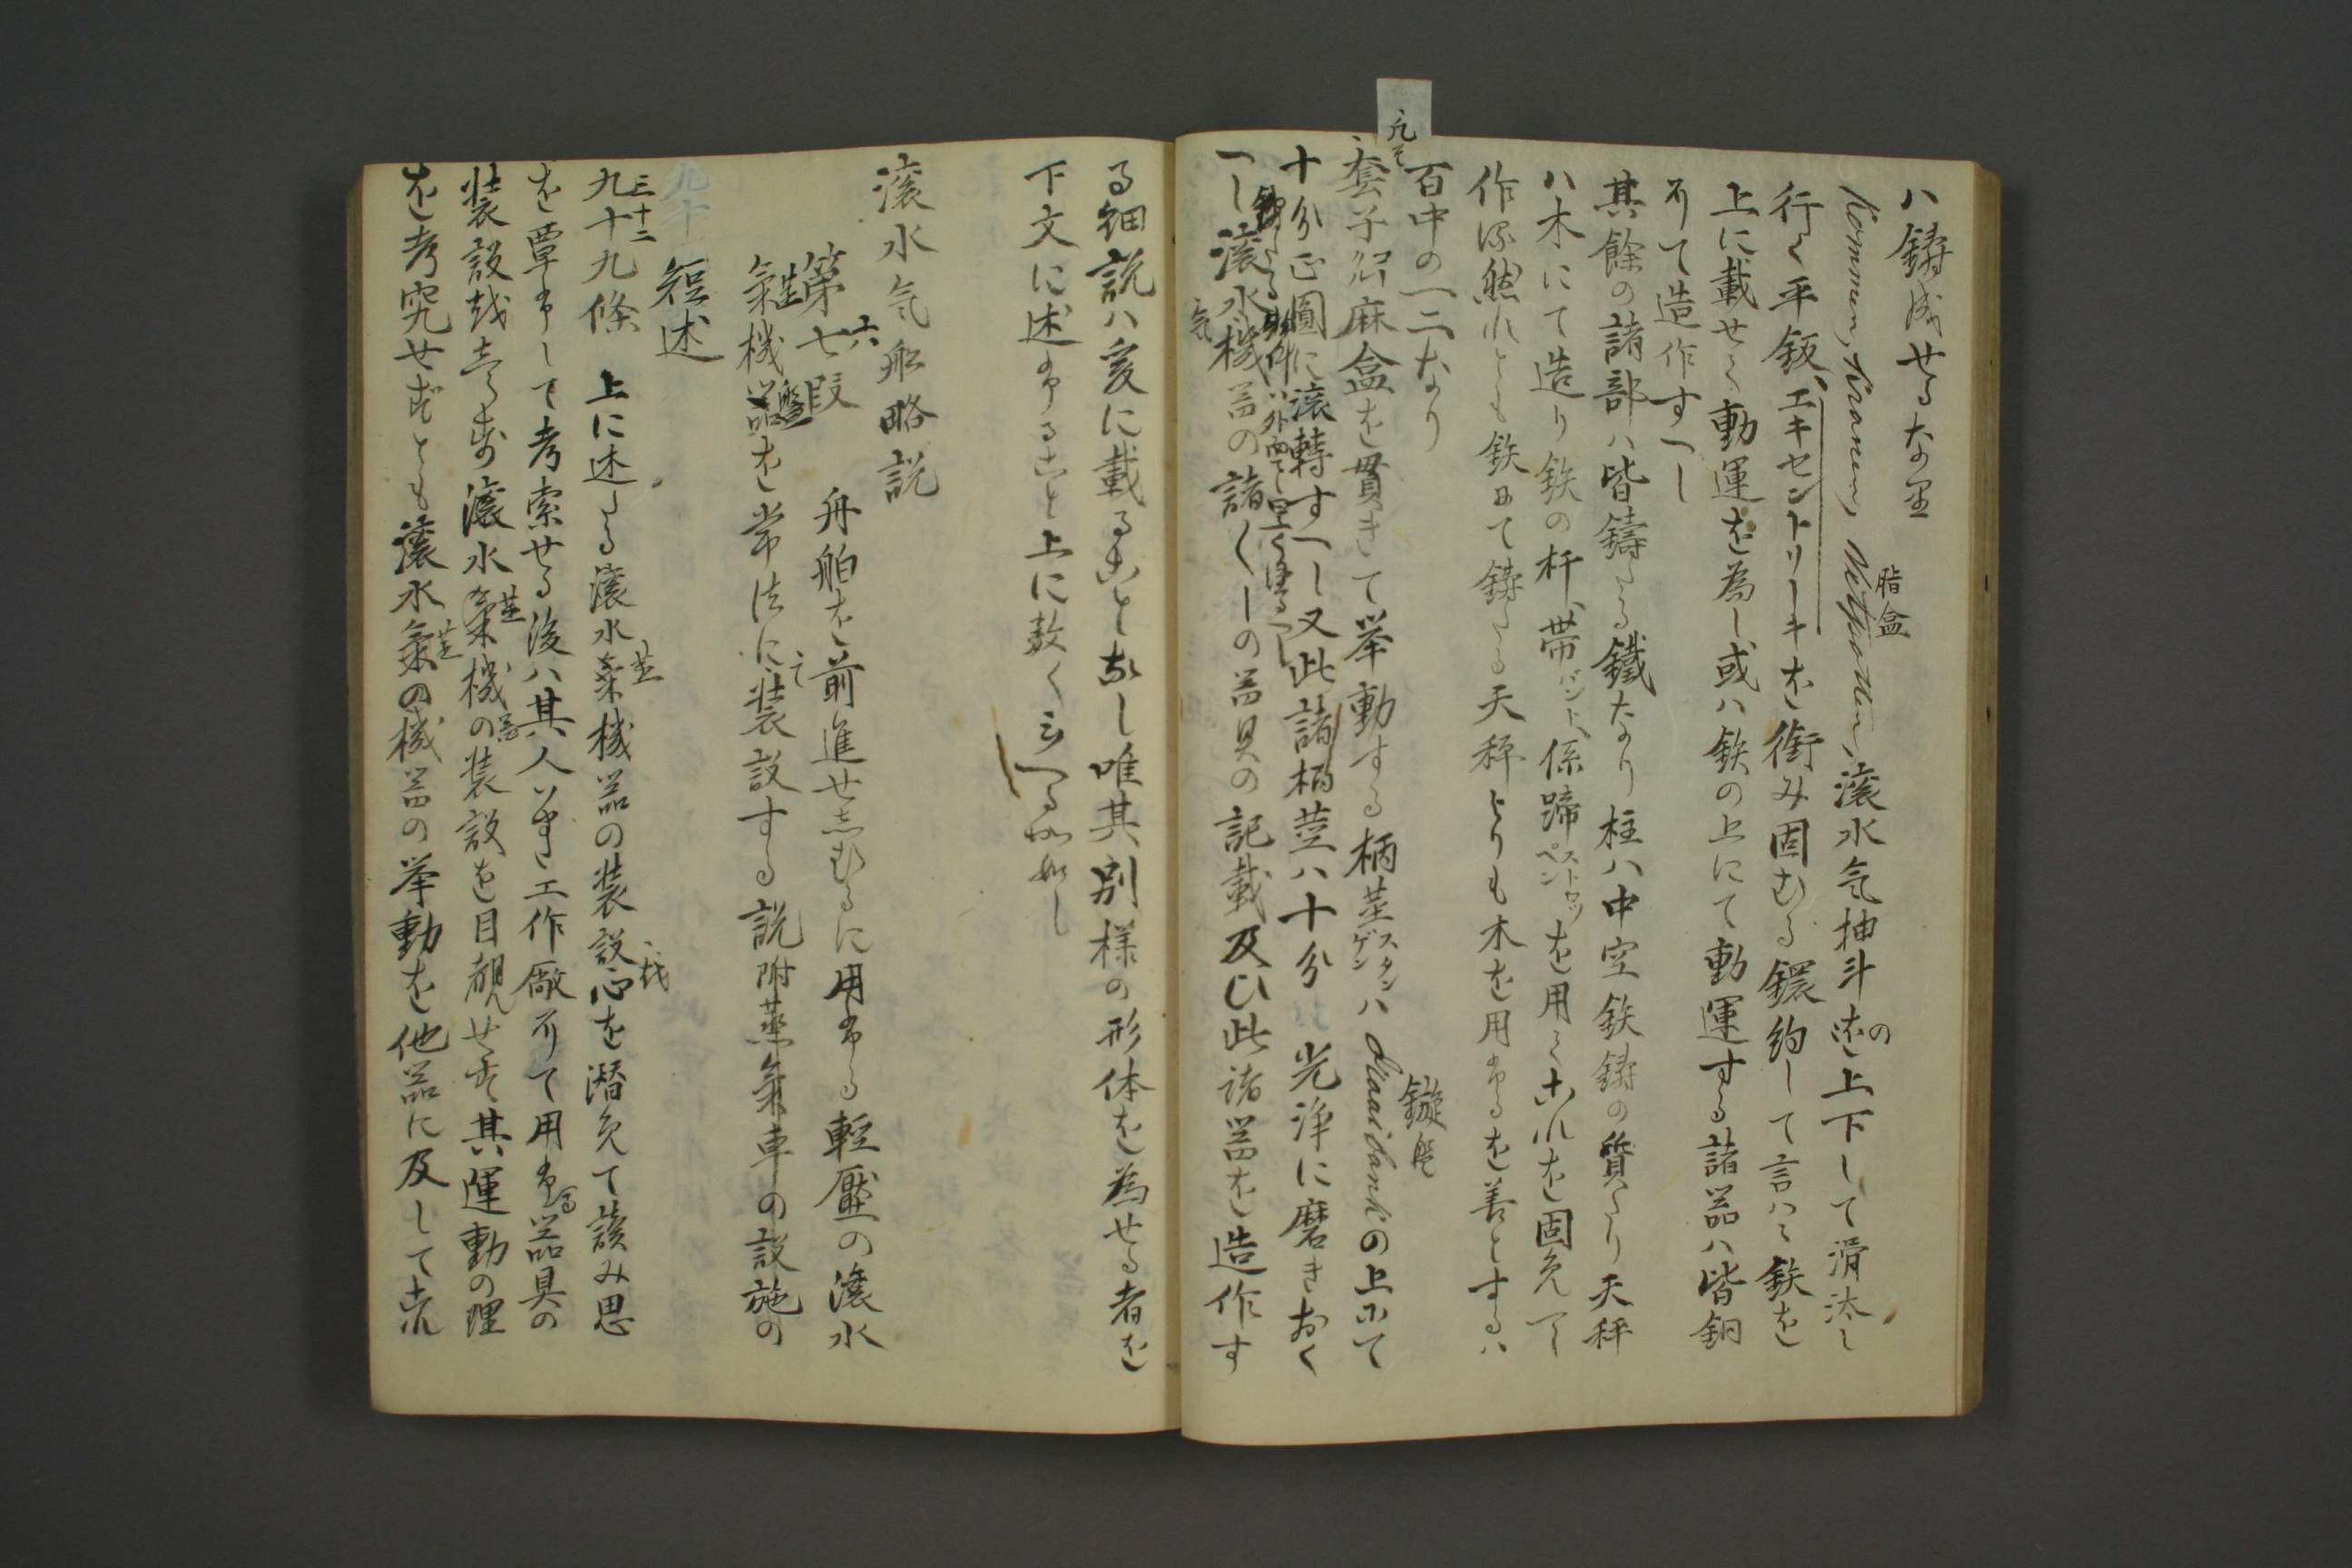 ハ鋳成せるなり
Kommen, Kranen, Vetpotten, 脂盒 滾水気抽斗の を上下して滑汰し
行く平鈑エキセントリーキを銜み固むる鐶約して言ハヽ鉄を
上に載せく動運を為し或ハ鉄の上にて動運する諸器ハ皆銅
にて造作すへし
其餘の諸部ハ皆鋳たる鐵なり柱ハ中空鉄鋳の質たり天秤
ハ木にて造り鉄の杆、帯バンド、係蹄ペンストロップを用てこれを固めて
作る然れとも鉄にて鋳たる天秤よりも木を用ゆるを善とするハ
百中の一二なり
凡そ
套子 麻盒を貫きて挙動する柄茎スタンゲンハ Draaibankの上にて
鏇盤
十分正圓に滾轉すへし又此諸柄茎ハ十分光浄に磨きおく
へし滾水機器の諸くしの器具の記載及ひ此諸器を造作す
気
る細説ハ爰に載ることなし唯其別様の形体を為せる者を
下文に述ゆること上に数く云へる如し
滾水気舩略説
第七六段 舟舶を前進せしむるに用ゆる軽壓の滾水
氣機器を常法にて装設する説附蒸氣車の設施の
短述
三十二
九十九條 上に述たる滾水氣機器の装設心を潜めて讀み思
を覃ゆして考索せる後ハ其人 工作厰にて用ゆる器具の
装設 滾水氣機器の装設を目覩せす其運動の理
を考究せすとも滾水氣の機器の挙動を他器に及して